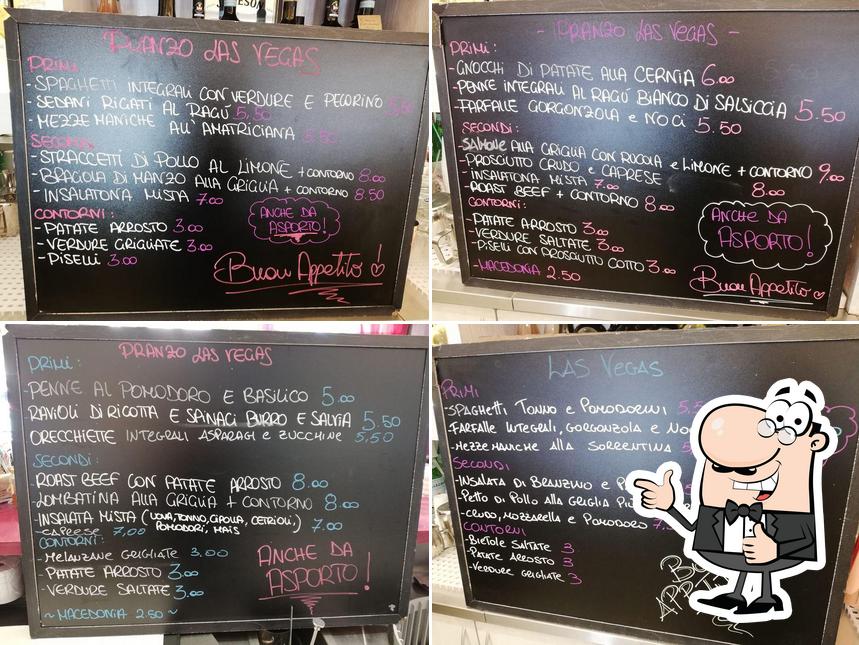 PRANZO LAS VEGAS
PRIMI:
- SPAGHETTI INTEGRALI CON VERDURE E PECORINO 5,50
- SEDANI RIGATI AL RAGÙ 5,50
- MEZZE MANICHE ALL'AMATRICIANA 5.50
SECONDI
- STRACCETTI DI POLLO AL LIMONE + CONTORNO 8.00
- BRACIOLA DI MANZO ALLA GRIGLIA + CONTORNO 8.50
- INSALATONA MISTA 7.00
CONTORNI:
- PATATE ARROSTO 3.00
- VERDURE GRIGLIATE 3.00
- PISELLI 3.00
ANCHE DA
ASPORTO!
Buon Appetito!
- PRANZO LAS VEGAS -
PRIMI:
- GNOCCHI DI PATATE ALLA CERNIA 6.00
- PENNE INTEGRALI AL RAGÙ BIANCO DI SALSICCIA 5.50
- FARFALLE GORGONZOLA e NOCI 5.50
SECONDI:
- SALMONE ALLA GRIGLIA CON RUCOLA e LIMONE + CONTORNO 9.00
- PROSCIUTTO CRUDO e CAPRESE 8.00
- INSALATONA MISTA 7.00
- ROAST BEEF + CONTORNO 8.00
CONTORNI:
- PATATE ARROSTO 3.00
- VERDURE SALTATE 3.00
- PISELLI CON PROSCIUTTO COTTO 3.00
- MACEDONIA 2.50
ANCHE DA
ASPORTO!
Buon Appetito
PRANZO LAS VEGAS
PRIMI:
- PENNE AL POMODORO E BASILICO 5.00
- RAVIOLI DI RICOTTA E SPINACI BURRO E SALVIA 5.50
ORECCHIETTE INTEGRALI ASPARAGI e ZUCCHINE 5,50
SECONDI:
- ROAST BEEF CON PATATE ARROSTO 8.00
- LOMBATINA ALLA GRIGLIA + CONTORNO 8.00
- INSALATA MISTA (UOVA, TONNO, CIPOLLA, CETRIOLI,) 7.00
POMODORI, MAIS
- CAPRESE 7,00
CONTORNI:
- MELANZANE GRIGLIATE 3,00
- PATATE ARROSTO 3.00
- VERDURE SALTATE 3.00
~ MACEDONIA 2.50 ~
ANCHE DA
ASPORTO!
LAS VEGAS
PRIMI
- SPAGHETTI TONNO e POMODORINI
- FARFALLE INTEGRALI, GORGONZOLA e
- MEZZE MANICHE ALLA SORRENTINA
SECONDI
- INSALATA DI BRANZINO e
- PETTO DI POLLO ALLA GRIGLIA
- CRUDO, MOZZARELLA e POMODORO
CONTORNI
- BIETOLE SALTATE 3
- PATATE ARROSTO 3
- VERDURE GRIGLIATE 3